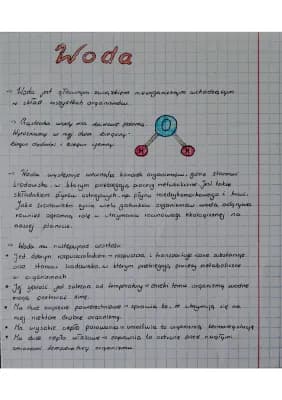 Woda
→ Woda jest głównym związkiem nieorganicznym wchodzącym
w skład wszystkich organizmów.
→ Cząsteczka wody ma
Wyróżniamy w niej dwa bieguny:
biegun dodatni i biegun ujemny
O
H
H
→ Woda wypełnia wnętrza komórek organizmów, gdzie stanowi
środowisko, w którym przebiegają procesy metaboliczne. Jest także
składnikiem płynów ustrojowych, np. płynu międzykomórkowego i krwi.
Jako środowisko życia wielu gatunków organizmów woda odgrywa
również ogromną rolę w utrzymaniu równowagi ekologicznej na
naszej planecie.
→ Woda ma następujące
• Jest dobrym rozpuszczalnikiem → rozpuszcza i transportuje różne substancje
oraz stanowi środowisko, w którym przebiegają procesy metaboliczne
w organizmach
• Jej gęstość jest zależna od temperatury → dzięki temu organizmy wodne
mogą przetrwać zimę.
• Ma duże napięcie powierzchniowe → sprawia to, że utrzymują się na
niej niektóre drobne organizmy.
• Ma wysokie ciepło parowania → umożliwia to organizmom termoregulację
• Ma duże ciepło właściwe → zapewnia to ochronę przed nagłymi
zmianami temperatury organizmu.